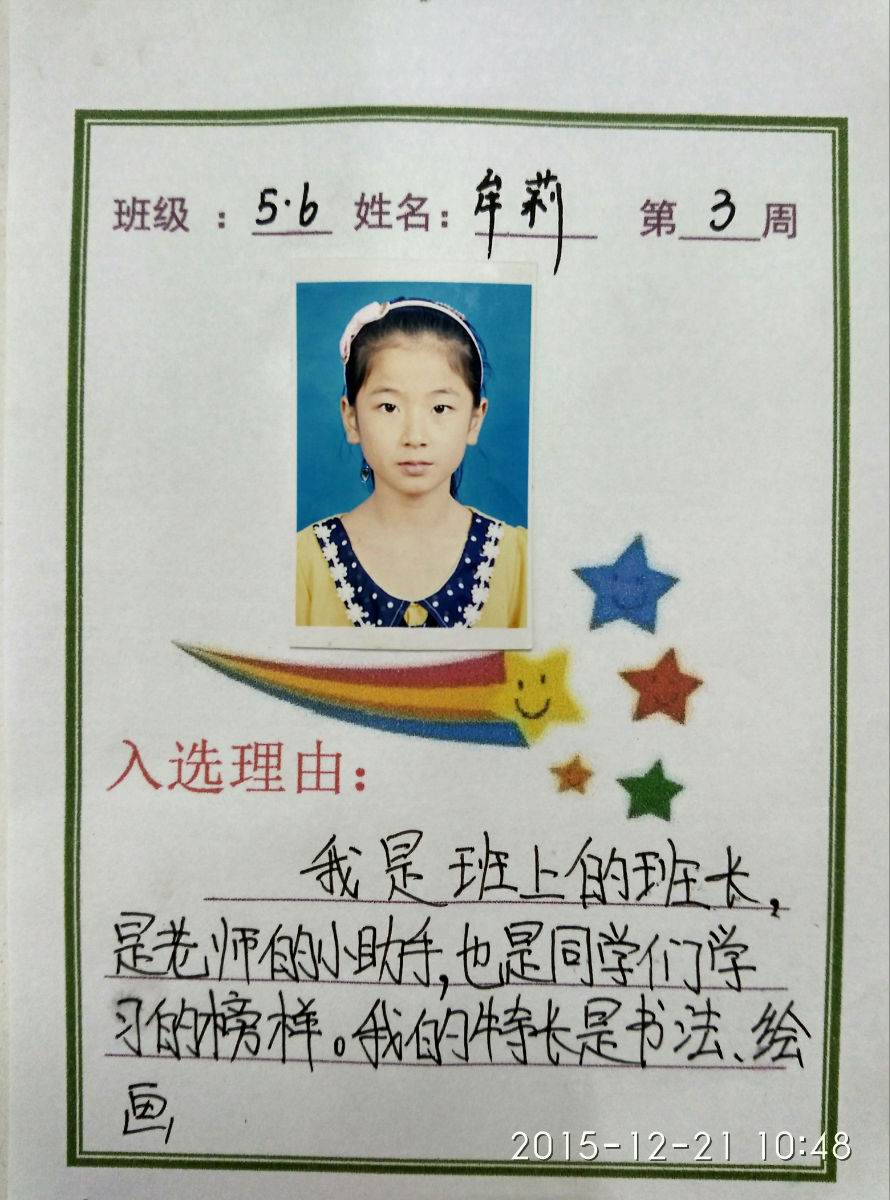 班级：5.6 姓名：牟莉 第3周
入选理由：
我是班上的班长，
是老师的小助手，也是同学们学
习的榜样。我的特长是书法、绘
画
2015-12-21 10:48